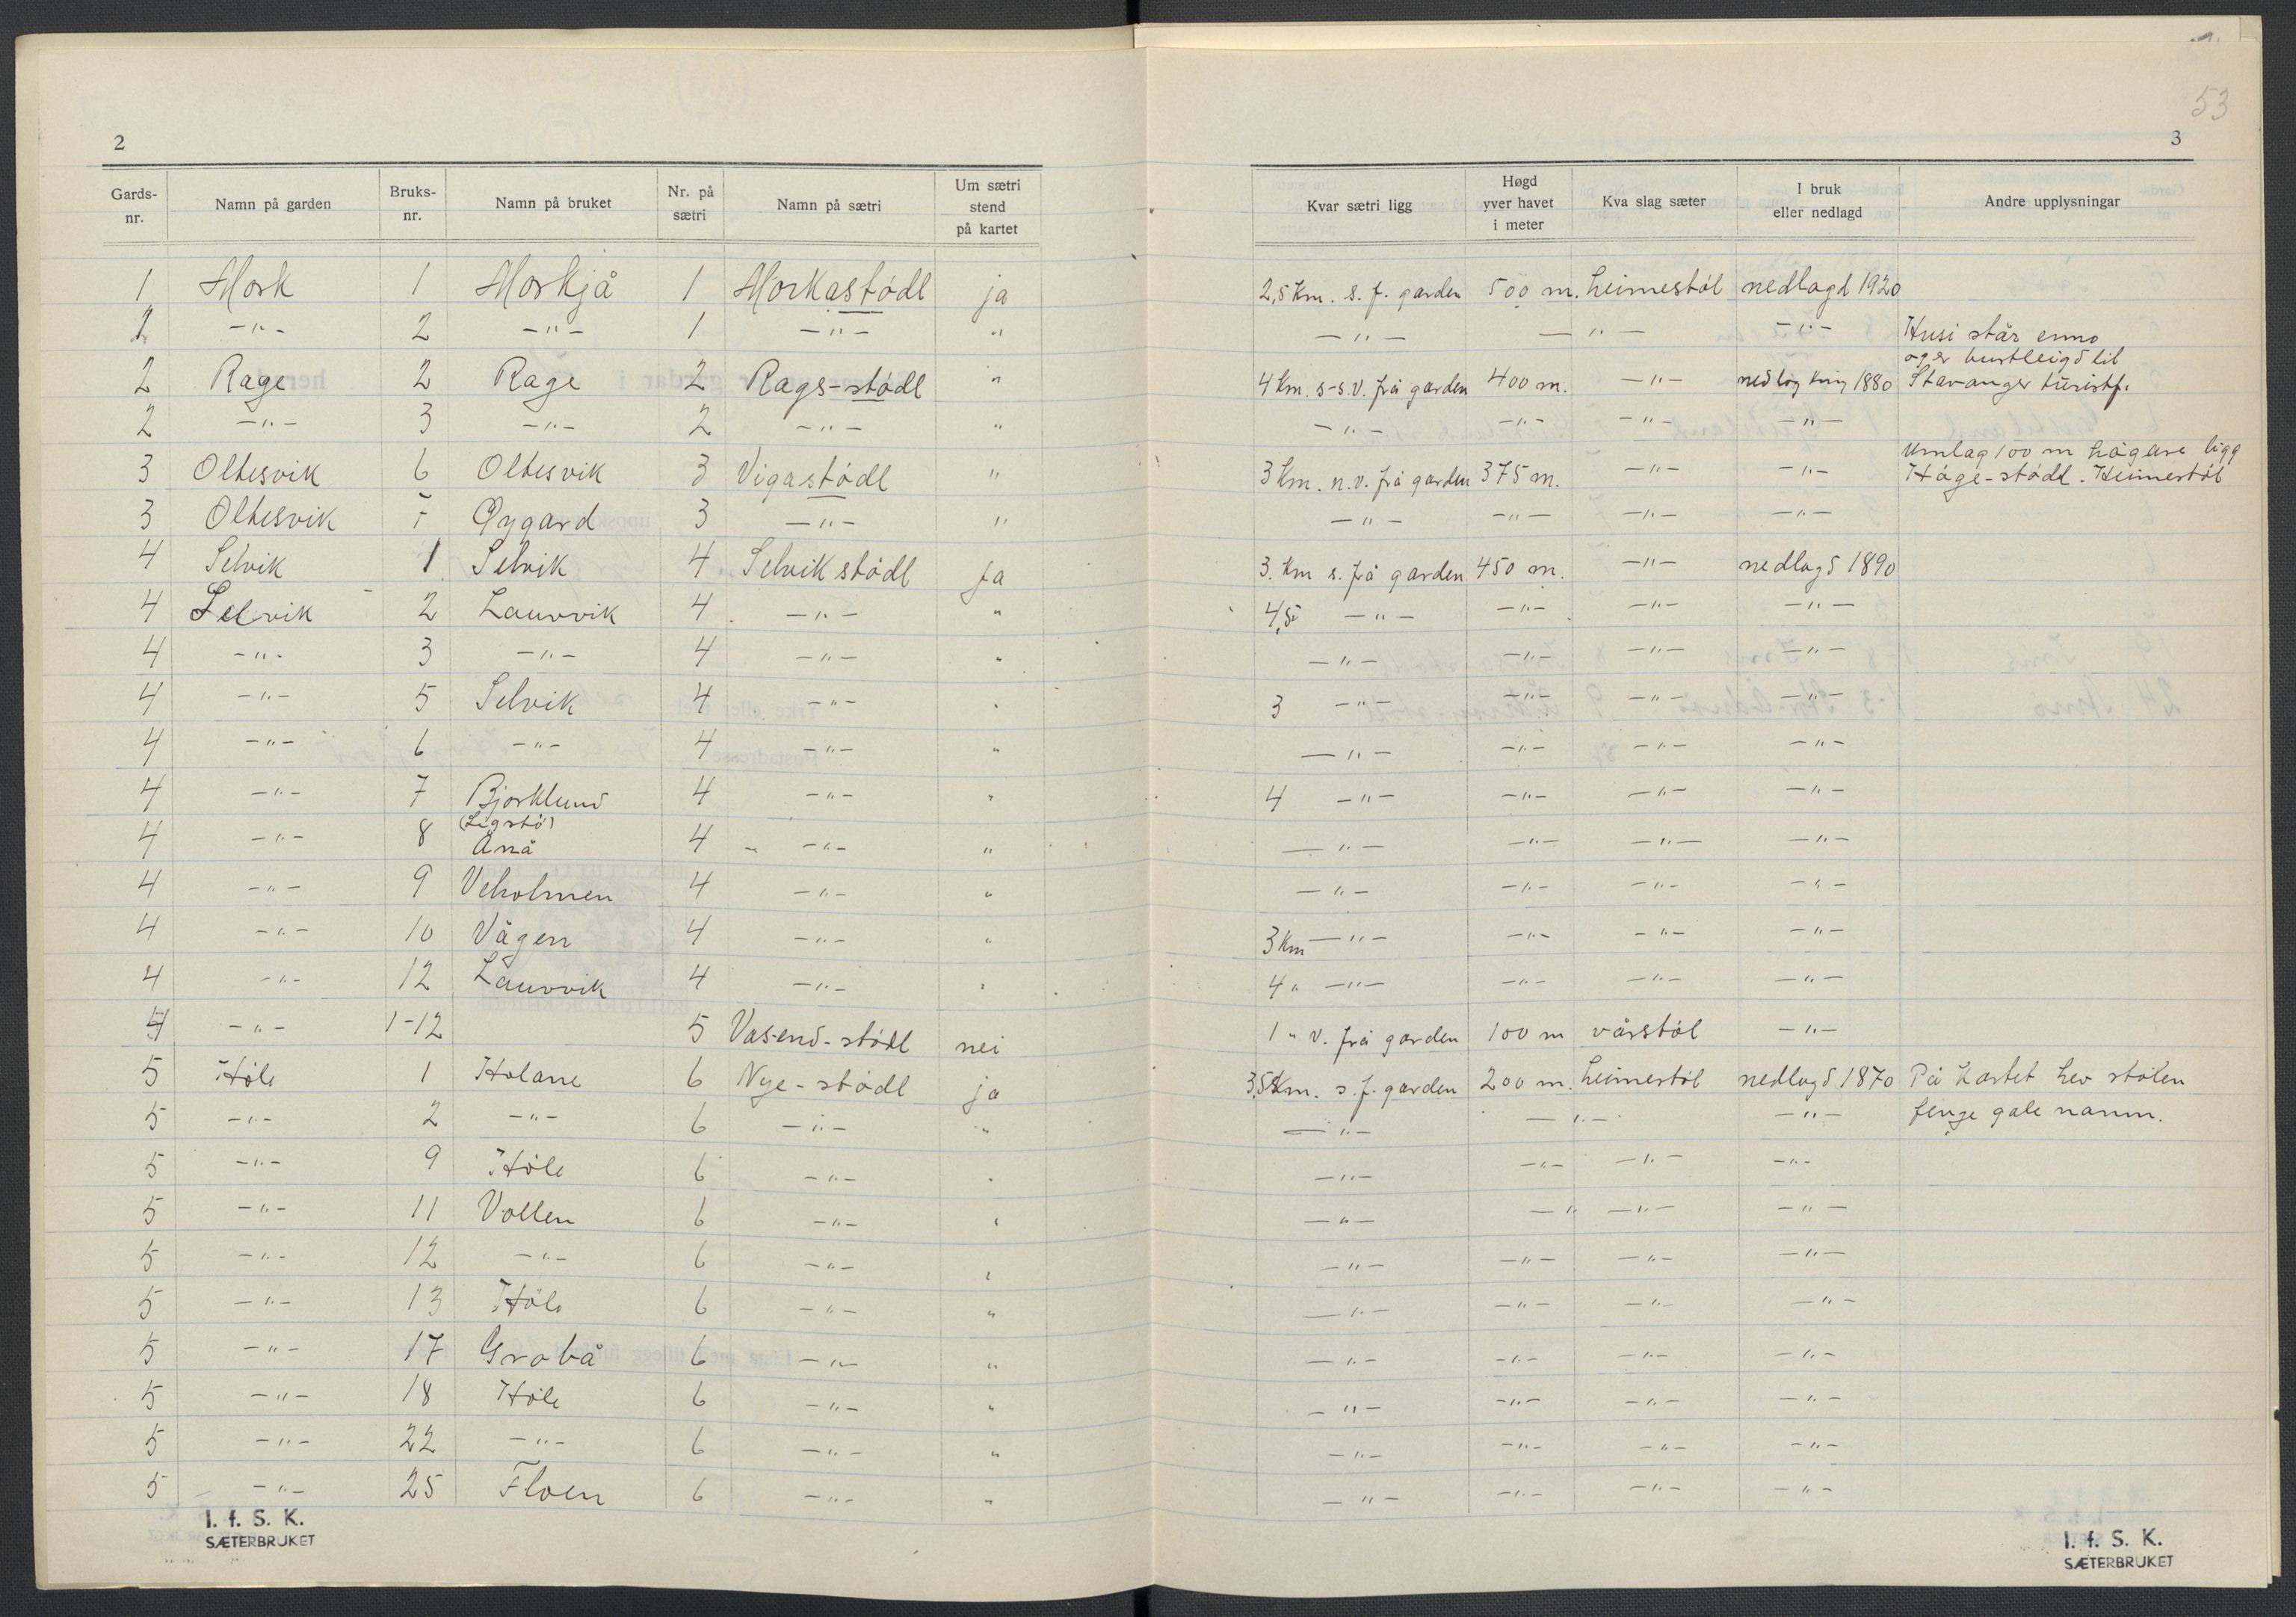 53
2
3
Gards-nr. Namn på garden Bruks-nr. Namn på bruket Nr. på sætri Namn på sætri Um sætri stend på kartet Kvar sætri ligg Høgd yver havet i meter Kva slag sæter I bruk eller nedlagd Andre upplysningar
1 Mork 1 Morkjå 1 Morkastødl ja 2,5 km. s. f. garden 500 m. heimestøl nedlagd 1920
1 -"- 2 -"- 1 -"- " -"- -"- -"- Husi står enno
og er burtleigd til
2 Rage 2 Rage 2 Rags-stødl " 4 km. s-s.v. frå garden 400 m. -"- nedlag kring 1880 Stavanger turistf.
2 -"- 3 -"- 2 -"- " -"- -"- -"- -"-
Umlag 100 m høgare ligg
3 Oltesvik 6 Oltesvik 3 Vigastødl " 3 km. n.v. frå garden 375 m. -"- -"- Høge-stødl. Heimestøl
3 Oltesvik Øygard 3 -"- " -"- -"- -"- -"-
4 Selvik 1 Selvik 4 Selvikstødl ja 3. km s. frå garden 450 m. -"- nedlagd 1890
4 Selvik 2 Lauvvik 4 -"- " 4,5 -"- -"- -"- -"-
4 -"- 3 -"- 4 -"- " -"- -"- -"- -"-
4 -"- 5 Selvik 4 -"- " 3 -"- -"- -"- -"-
4 -"- 6 -"- 4 -"- " -"- -"- -"- -"-
4 -"- 7 Bjorklund 4 -"- " 4 -"- -"- -"- -"-
4 -"- 8 (Ligstø) Ånå 4 -"- " -"- -"- -"- -"-
4 -"- 9 Veholmen 4 -"- " -"- -"- -"- -"-
4 -"- 10 Vågen 4 -"- " 3 km -"- -"- -"- -"-
4 -"- 12 Lauvvik 4 -"- " 4 " -"- -"- -"- -"-
4 -"- 1-12 5 Vasend-stødl nei 1 " v. frå garden 100 m vårstøl -"-
5 Høle 1 Holane 6 Nye-stødl ja 3,5 km. s. f. garden 200 m. heimestøl nedlagd 1870 På kartet hev stølen
5 -"- 2 -"- 6 -"- " -"- -"- -"- fenge gale namn.
5 -"- 9 Høle 6 -"- " -"- -"- -"- -"-
5 -"- 11 Vollen 6 -"- " -"- -" -"- -"-
5 -"- 12 -"- 6 -"- " -"- -"- -"- -"-
5 -"- 13 Høle 6 -"- " -"- -"- -"- -"-
5 -"- 17 Grobå 6 -"- " -"- -"- -"- -"-
5 -"- 18 Høle 6 -"- " -"- -"- -"- -"-
5 -"- 22 -"- 6 -"- " -"- -"- -"- -"-
5 -"- 25 Floen 6 -"- " -"- -"- -"- -"-
I. f. S. K.
SÆTERBRUKET
I. f. S. K.
SÆTERBRUKET